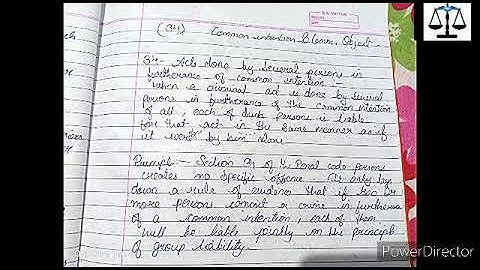 Common intention & Comm. Object.
34- Acts done by several person in
furtherance of common intention
when a criminal act is done by several
persons in furtherance of the common intention
of all, each of such persons is liable
for that act in the same manner as if
it were by him alone.
Example - Section 34 of Penal code persons
creates no specific offence. It only lay
down a rule of evidence that if two or
more persons commit a crime in furtherance
of a common intention, each of them
will be liable jointly on the principle
of group liability.
PowerDirector